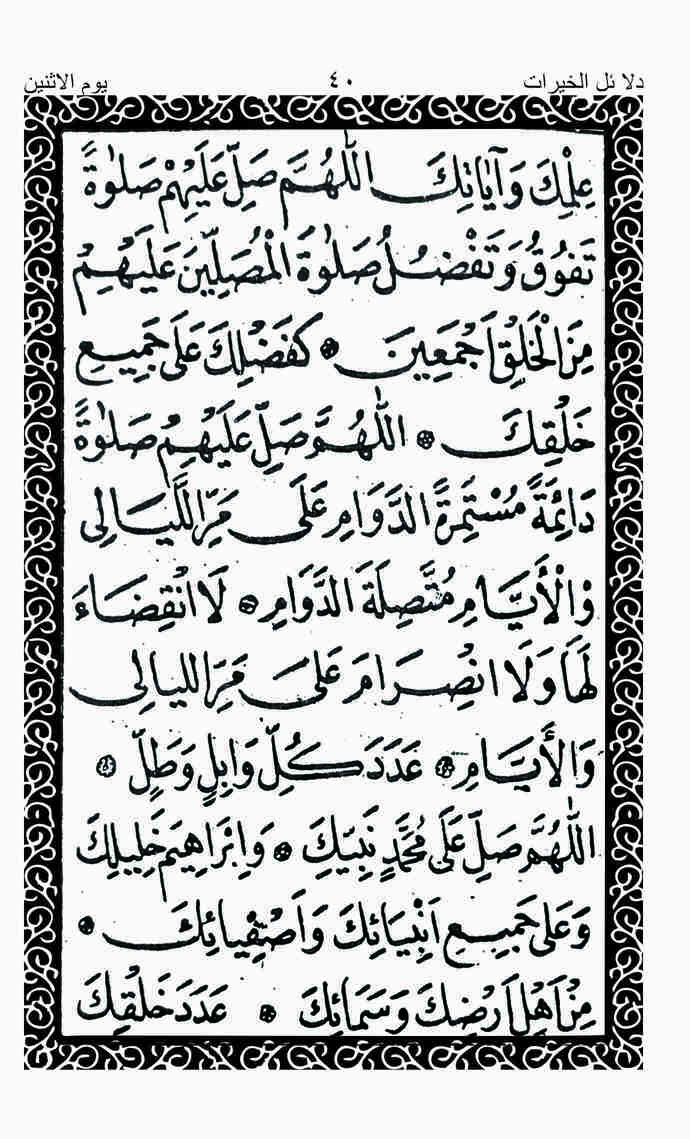 دلائل الخيرات ٤٠ يوم الاثنين
عِلْمِكَ وَآيَاتِكَ اللّٰهُمَّ صَلِّ عَلَيْهِمْ صَلٰوةً
تَفُوقُ وَتَفْضُلُ صَلٰوةَ الْمُصَلِّينَ عَلَيْهِمْ
مِنَ الْخَلْقِ اَجْمَعِينَ ۞ كَفَضْلِكَ عَلَى جَمِيعِ
خَلْقِكَ ۞ اللّٰهُمَّ صَلِّ عَلَيْهِمْ صَلٰوةً
دَائِمَةً مُسْتَمِرَّةَ الدَّوَامِ عَلَى مَرِّ اللَّيَالِى
وَالْأَيَّامِ مُتَّصِلَةَ الدَّوَامِ ۞ لَا انْقِضَاءَ
لَهَا وَلَا انْصِرَامَ عَلَى مَرِّ الليالِى
وَالأَيَّامِ ۞ عَدَدَ كُلِّ وَابِلٍ وَطَلٍّ ۞
اللّٰهُمَّ صَلِّ عَلَى مُحَمَّدٍ نَبِيِّكَ ۞ وَاِبْرَاهِيمَ خَلِيلِكَ
وَعَلَى جَمِيعِ اَنْبِيَائِكَ وَاَصْفِيائِكَ ۞
مِنْ اَهْلِ اَرْضِكَ وَسَمَائِكَ ۞ عَدَدَ خَلْقِكَ